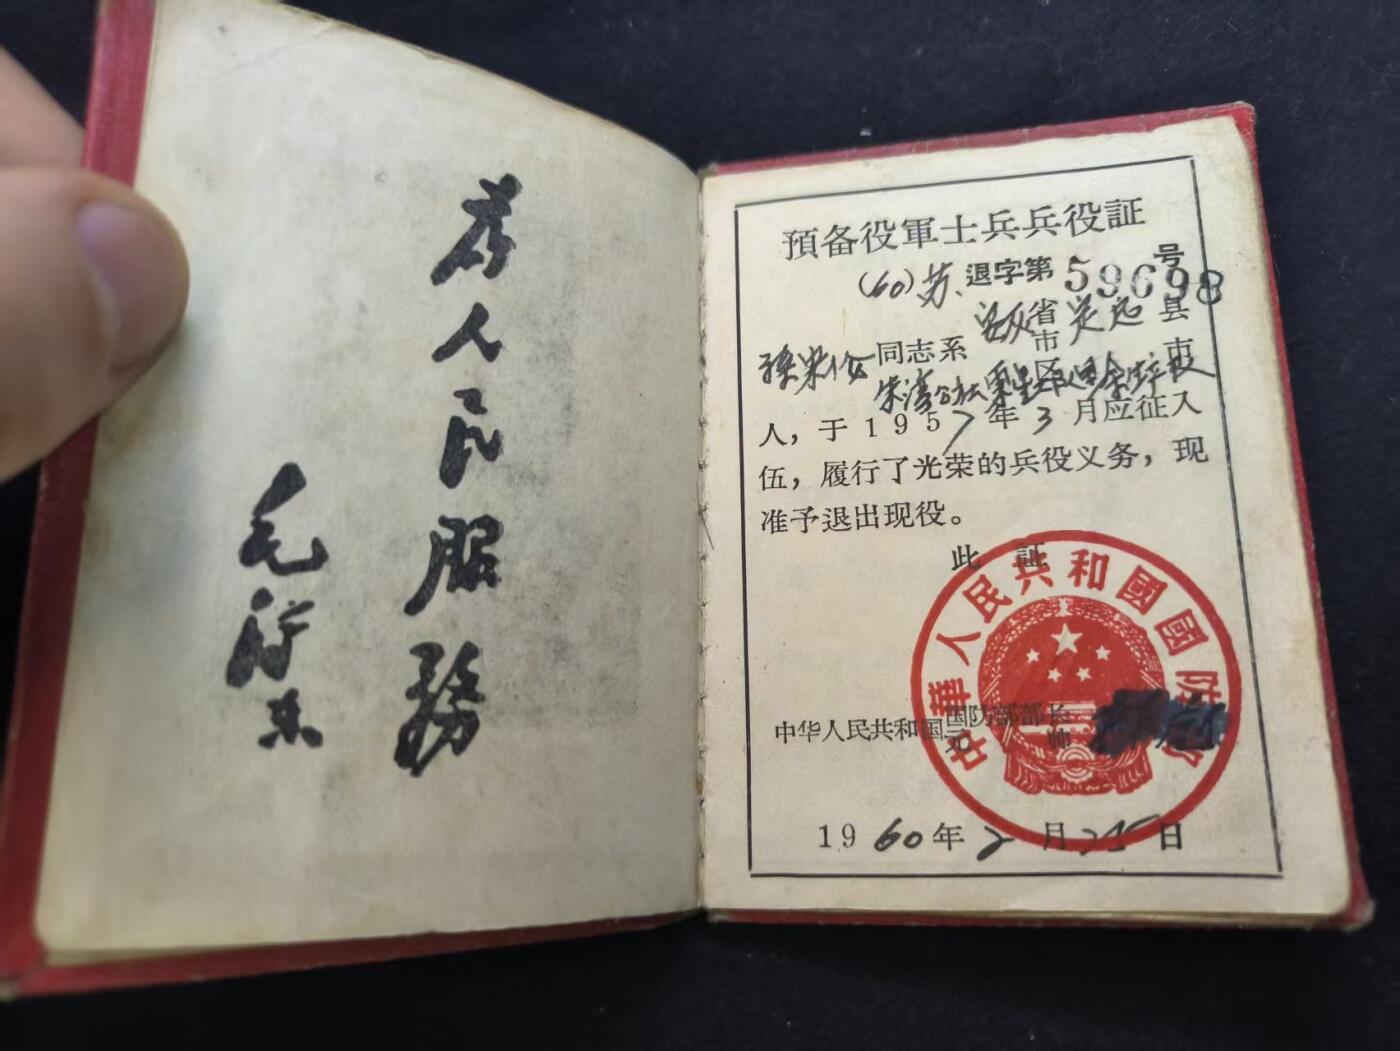 为人民服務
毛泽东
預备役軍士兵兵役証
(60)苏 退字第59698号
同志系 省 定远 县
市 市
区
人，于1957年3月应征入
伍，履行了光荣的兵役义务，现
准予退出现役。
此 証
中華人民共和國國防部
中华人民共和国国防部部长
元 帅
1960年2月25日